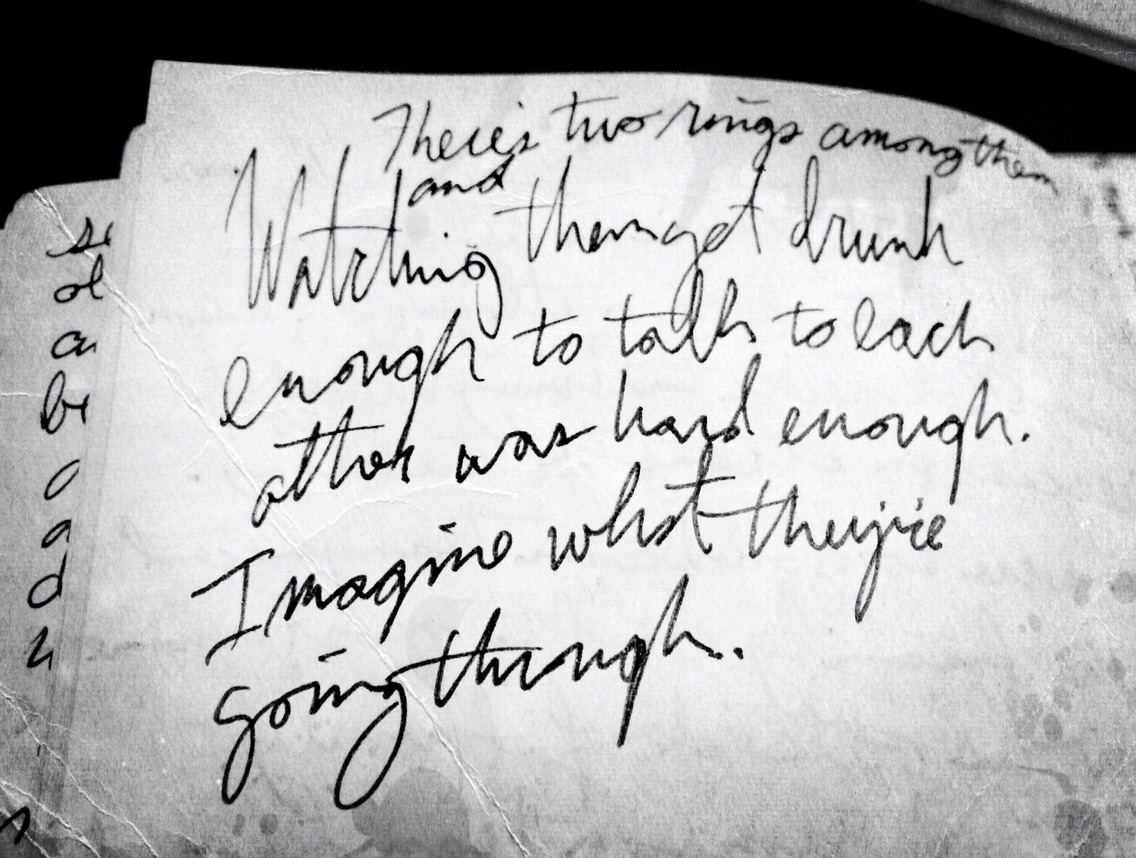 There's two rings among them
and
Watching them get drunk
enough to talk to each
other was hard enough.
Imagine what they're
going through.
se
ol
a
be
a
a
d
h